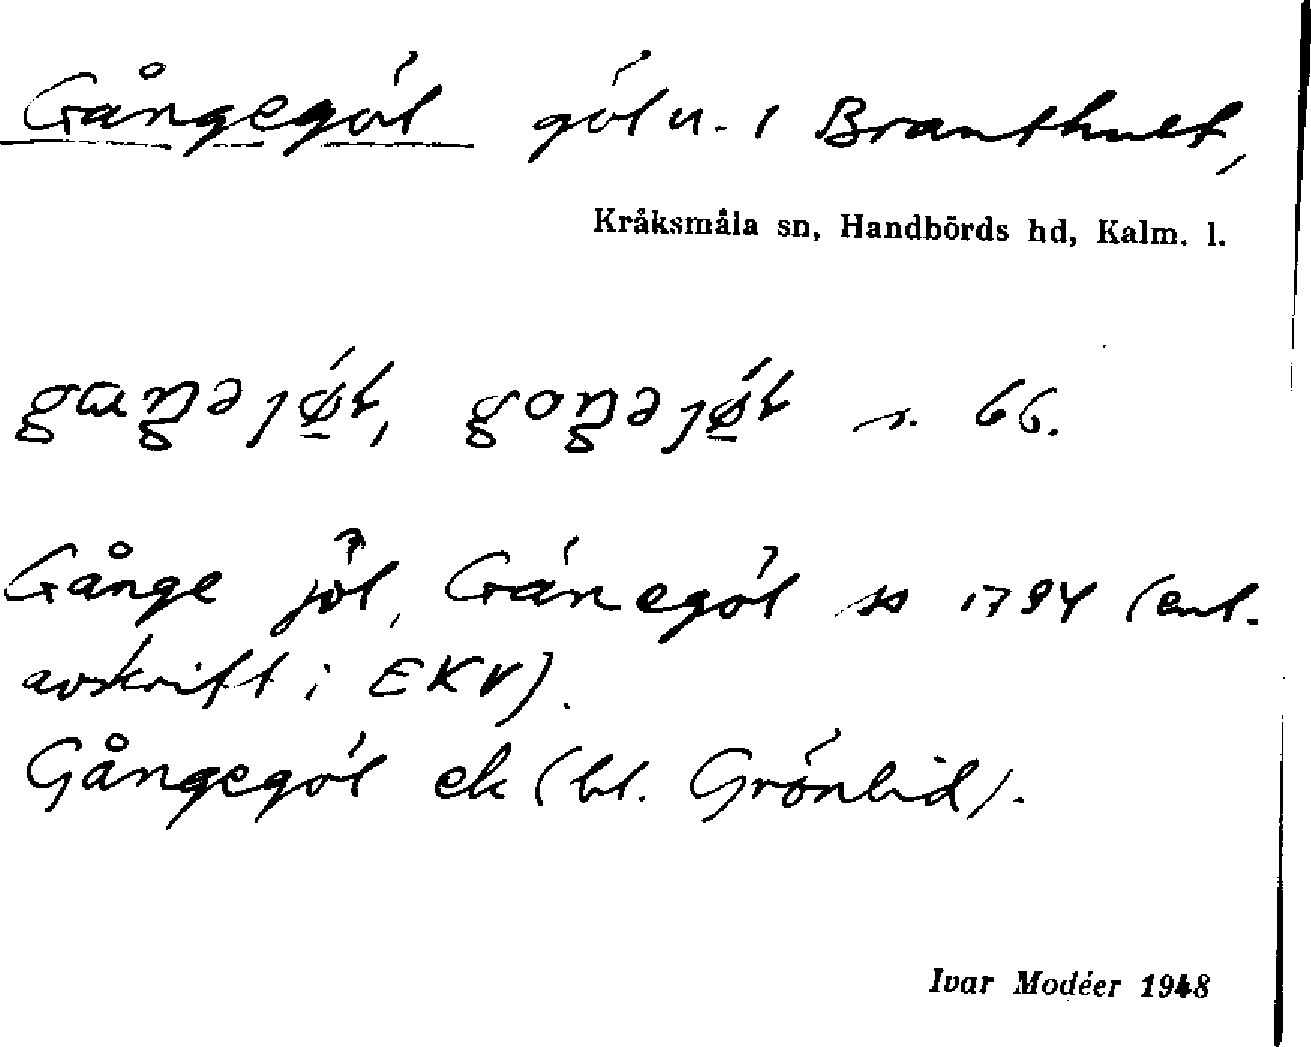 Gångegöl göl n. i Branthult,
Kråksmåla sn, Handbörds hd, Kalm. l.
s. 66.
Gånge jöl, Gånegöl ss 1794 (enl.
avskrift i EKV).
Gångegöl ek (bl. Grönlid).
Ivar Modéer 1948